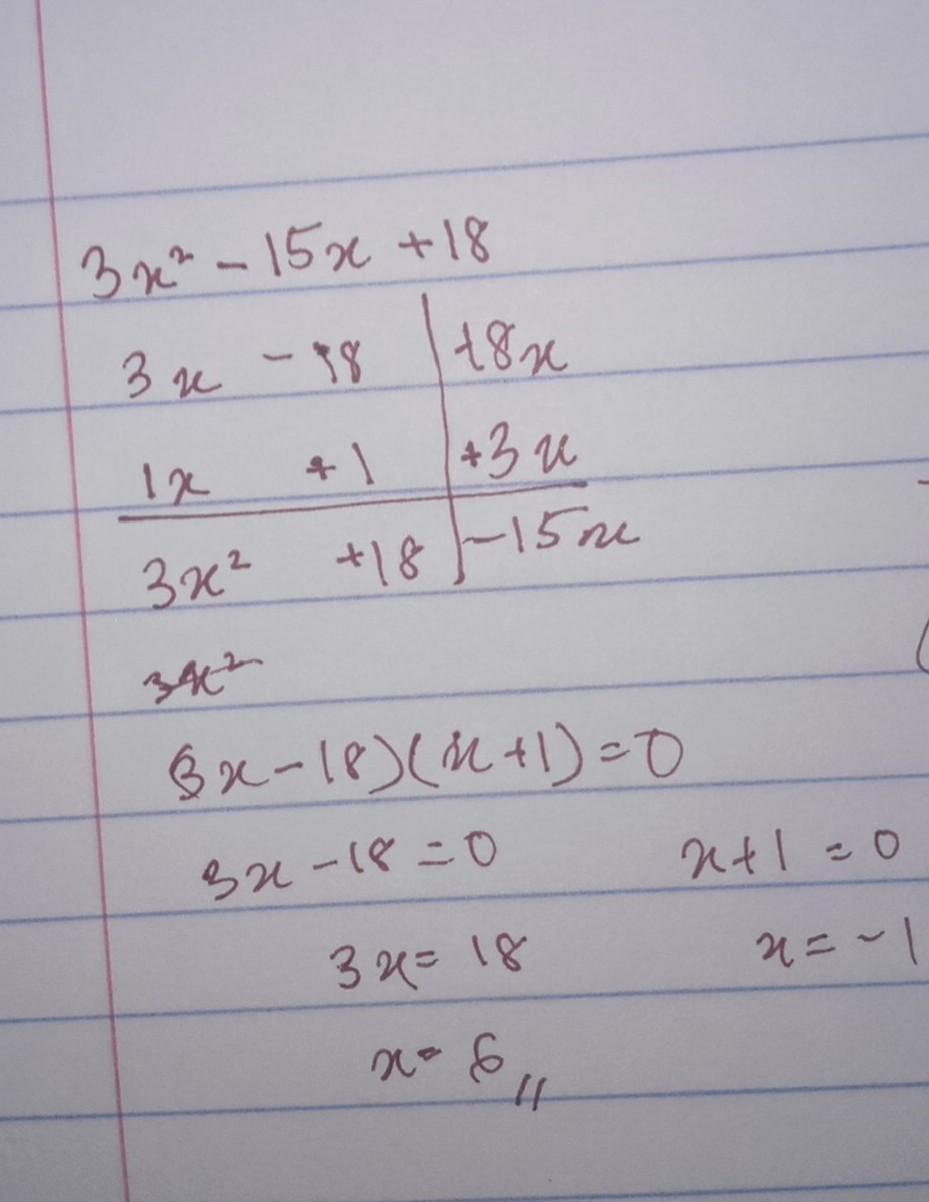 3x² - 15x + 18
3x - 18 | +8x
1x + 1 | +3x
3x² + 18 | -15x
3x²
(3x - 18)(x + 1) = 0
3x - 18 = 0 x + 1 = 0
3x = 18 x = -1
x = 6 //